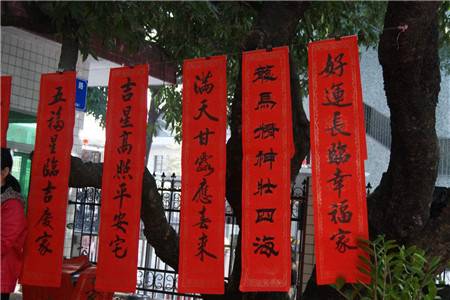 好運長臨幸福家
龍馬精神壯四海
滿天甘露應喜來
吉星高照平安宅
五福星臨吉慶家